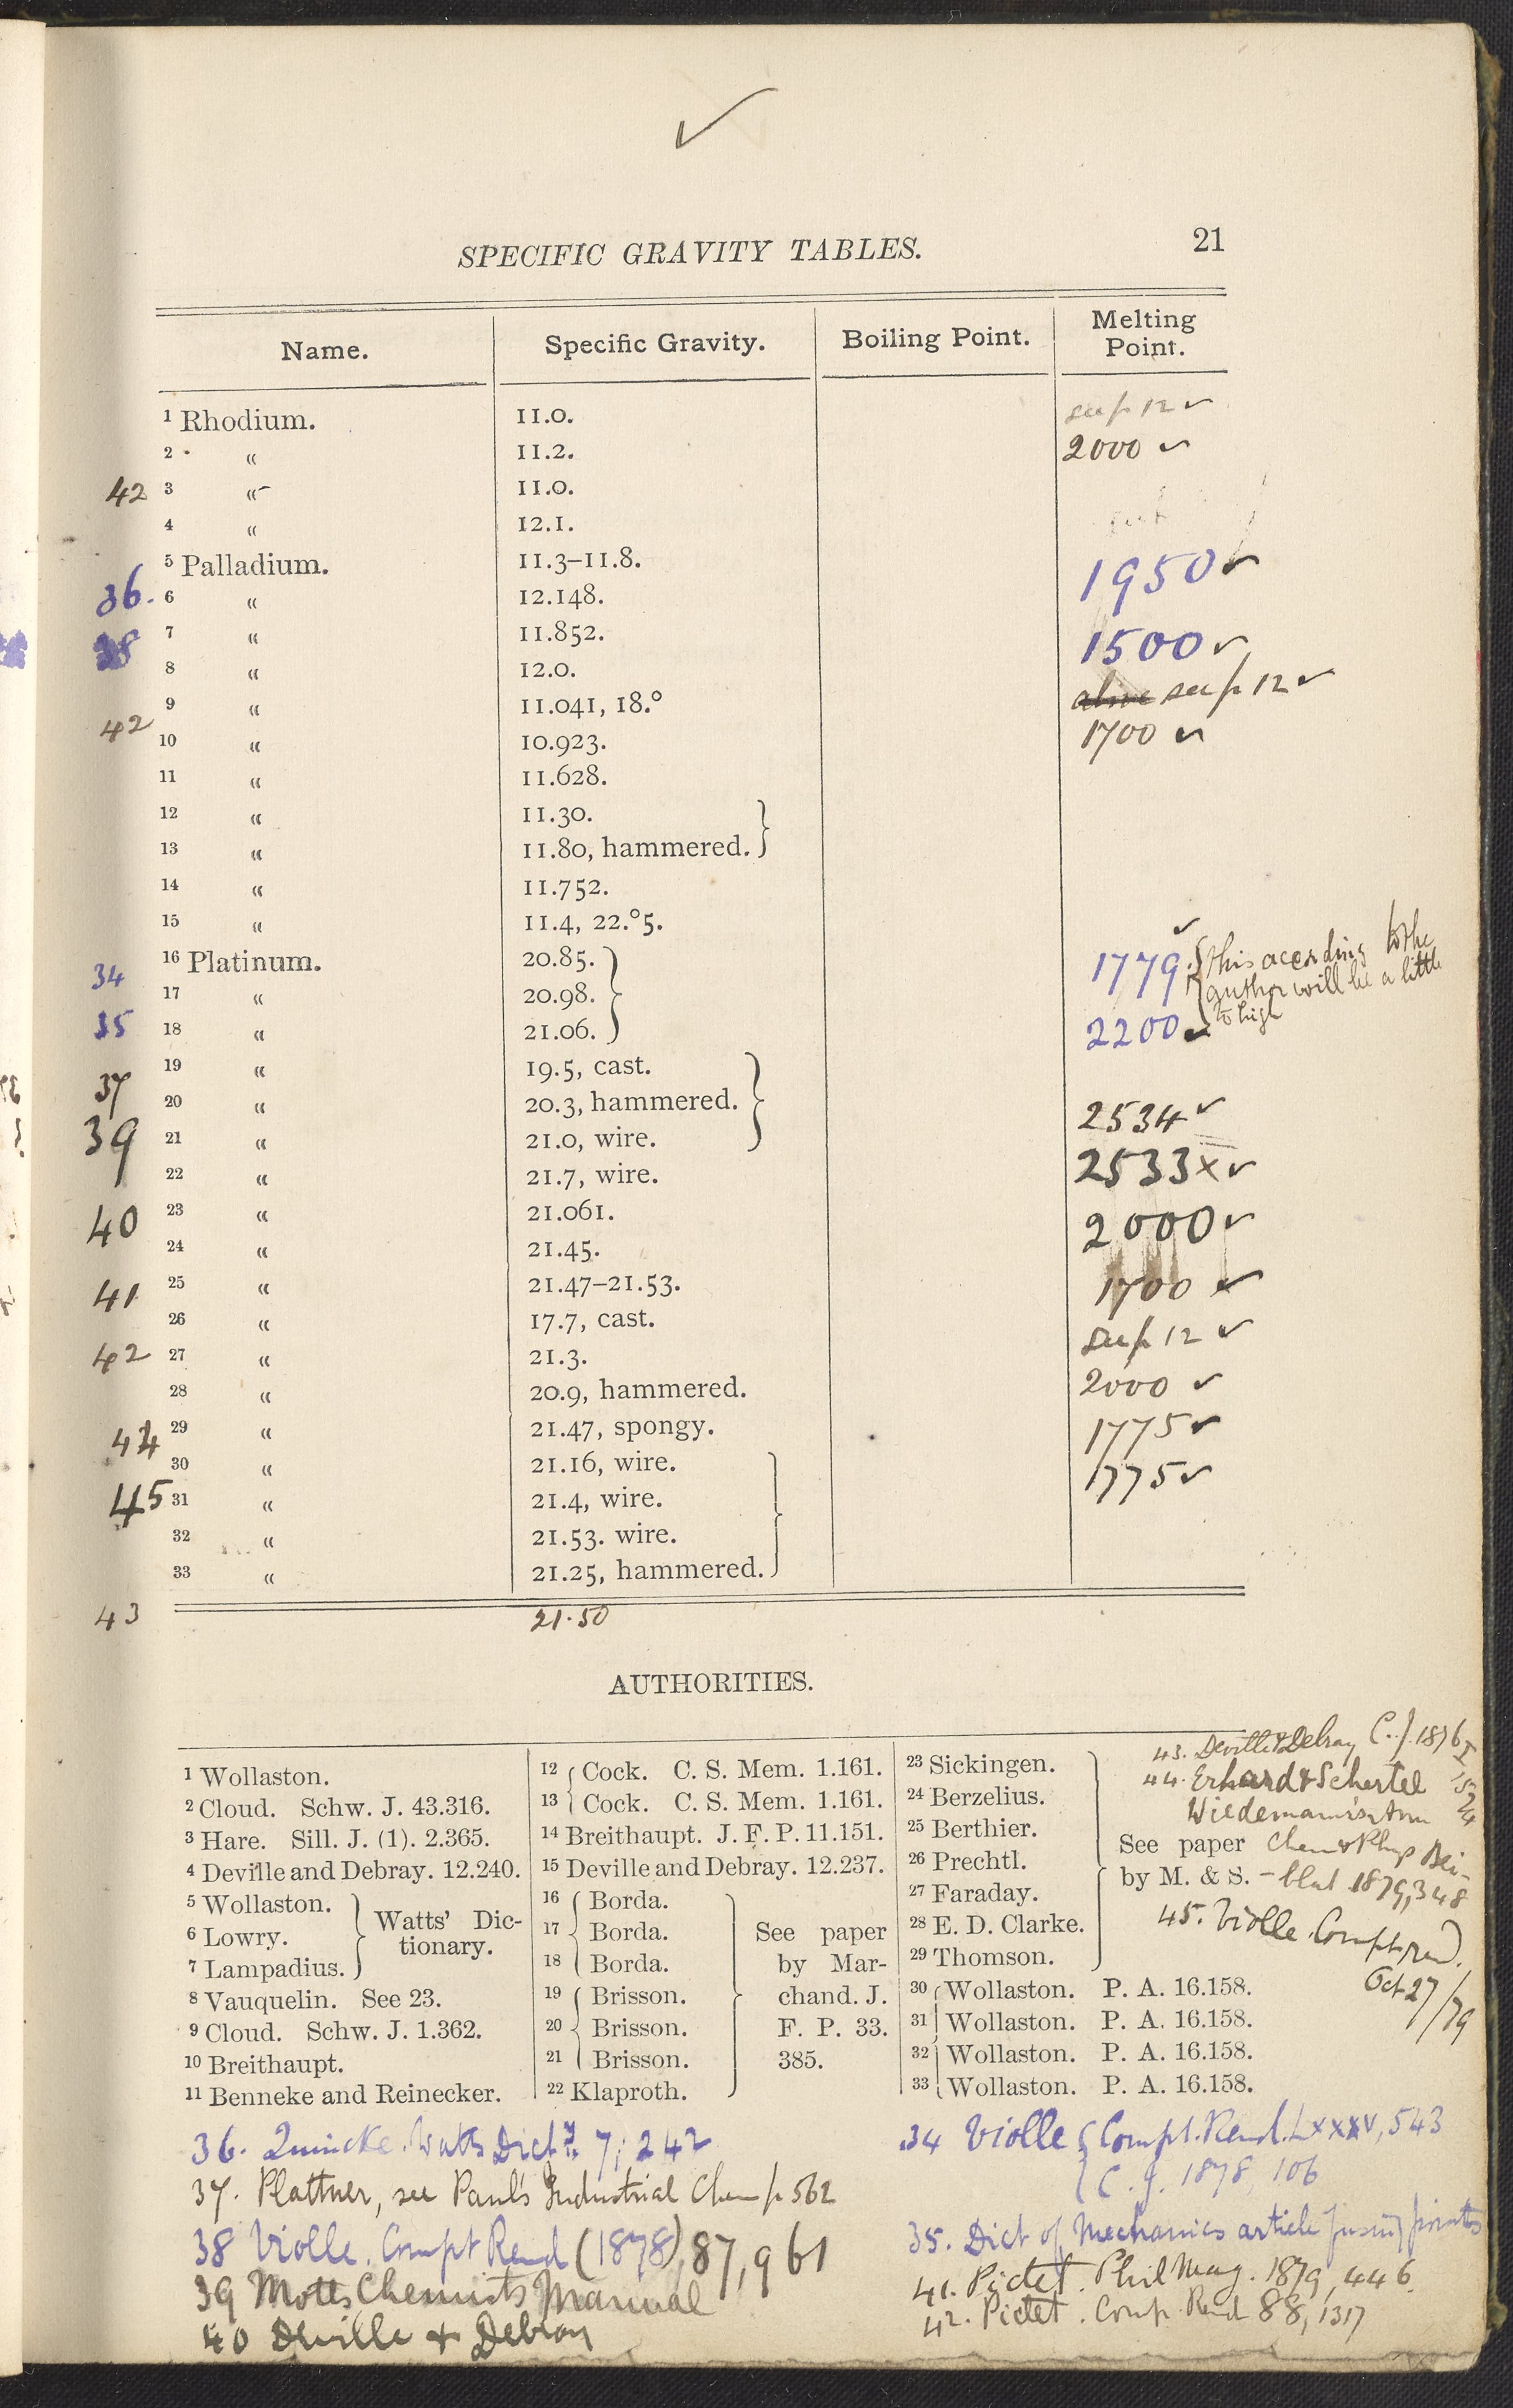 SPECIFIC GRAVITY TABLES. 21
Name. Specific Gravity. Boiling Point. Melting Point.
1 Rhodium. 11.0. see p 12 ✓
2 " 11.2. 2000 ✓
42 3 " 11.0.
4 " 12.1.
5 Palladium. 11.3–11.8. 1950 ✓
36. 6 " 12.148.
38 7 " 11.852. 1500 ✓
8 " 12.0. see p 12 ✓
9 " 11.041, 18.°
42 10 " 10.923. 1700 ✓
11 " 11.628.
12 " 11.30.
13 " 11.80, hammered.
14 " 11.752.
15 " 11.4, 22.°5.
34 16 Platinum. 20.85. 1779. { this according to the
17 " 20.98. author will be a little
35 18 " 21.06. 2200 ✓ to high
19 " 19.5, cast.
37 20 " 20.3, hammered. 2534 ✓
39 21 " 21.0, wire. 2533 x ✓
22 " 21.7, wire.
40 23 " 21.061. 2000 ✓
24 " 21.45.
41 25 " 21.47–21.53. 1700 ✓
26 " 17.7, cast. see p 12 ✓
42 27 " 21.3.
28 " 20.9, hammered. 2000 ✓
44 29 " 21.47, spongy. 1775 ✓
30 " 21.16, wire.
45 31 " 21.4, wire. 1775 ✓
32 " 21.53. wire.
33 " 21.25, hammered.
43 21.50
AUTHORITIES.
1 Wollaston.
2 Cloud. Schw. J. 43.316.
3 Hare. Sill. J. (1). 2.365.
4 Deville and Debray. 12.240.
5 Wollaston.
6 Lowry.
7 Lampadius.
Watts' Dic-
tionary.
8 Vauquelin. See 23.
9 Cloud. Schw. J. 1.362.
10 Breithaupt.
11 Benneke and Reinecker.
12 Cock. C. S. Mem. 1.161.
13 Cock. C. S. Mem. 1.161.
14 Breithaupt. J. F. P. 11.151.
15 Deville and Debray. 12.237.
16 Borda.
17 Borda.
18 Borda.
19 Brisson.
20 Brisson.
21 Brisson.
22 Klaproth.
See paper
by Mar-
chand. J.
F. P. 33.
385.
23 Sickingen.
24 Berzelius.
25 Berthier.
26 Prechtl.
27 Faraday.
28 E. D. Clarke.
29 Thomson.
See paper
by M. & S.
30 Wollaston. P. A. 16.158.
31 Wollaston. P. A. 16.158.
32 Wollaston. P. A. 16.158.
33 Wollaston. P. A. 16.158.
43. Deville & Debray C. J. 1876 I
44. Erhard & Schertel
Wiedemann's
Chem & Phys Bei-
blat 1879, 348
45. Violle. Compt. rend.
Oct 27/79
36. Quincke. Watts Dict 7; 242
37. Plattner, see Paul's Industrial Chem p 562
38 Violle. Compt Rend (1878), 87, 961
39 Motts Chemists Manual
40 Deville & Debray
34 Violle { Compt. Rend. LXXXV, 543
C. J. 1878, 106
35. Dict of Mechanics article fusing points
41. Pictet. Phil Mag. 1879, 446
42. Pictet. Comp. Rend 88, 1317